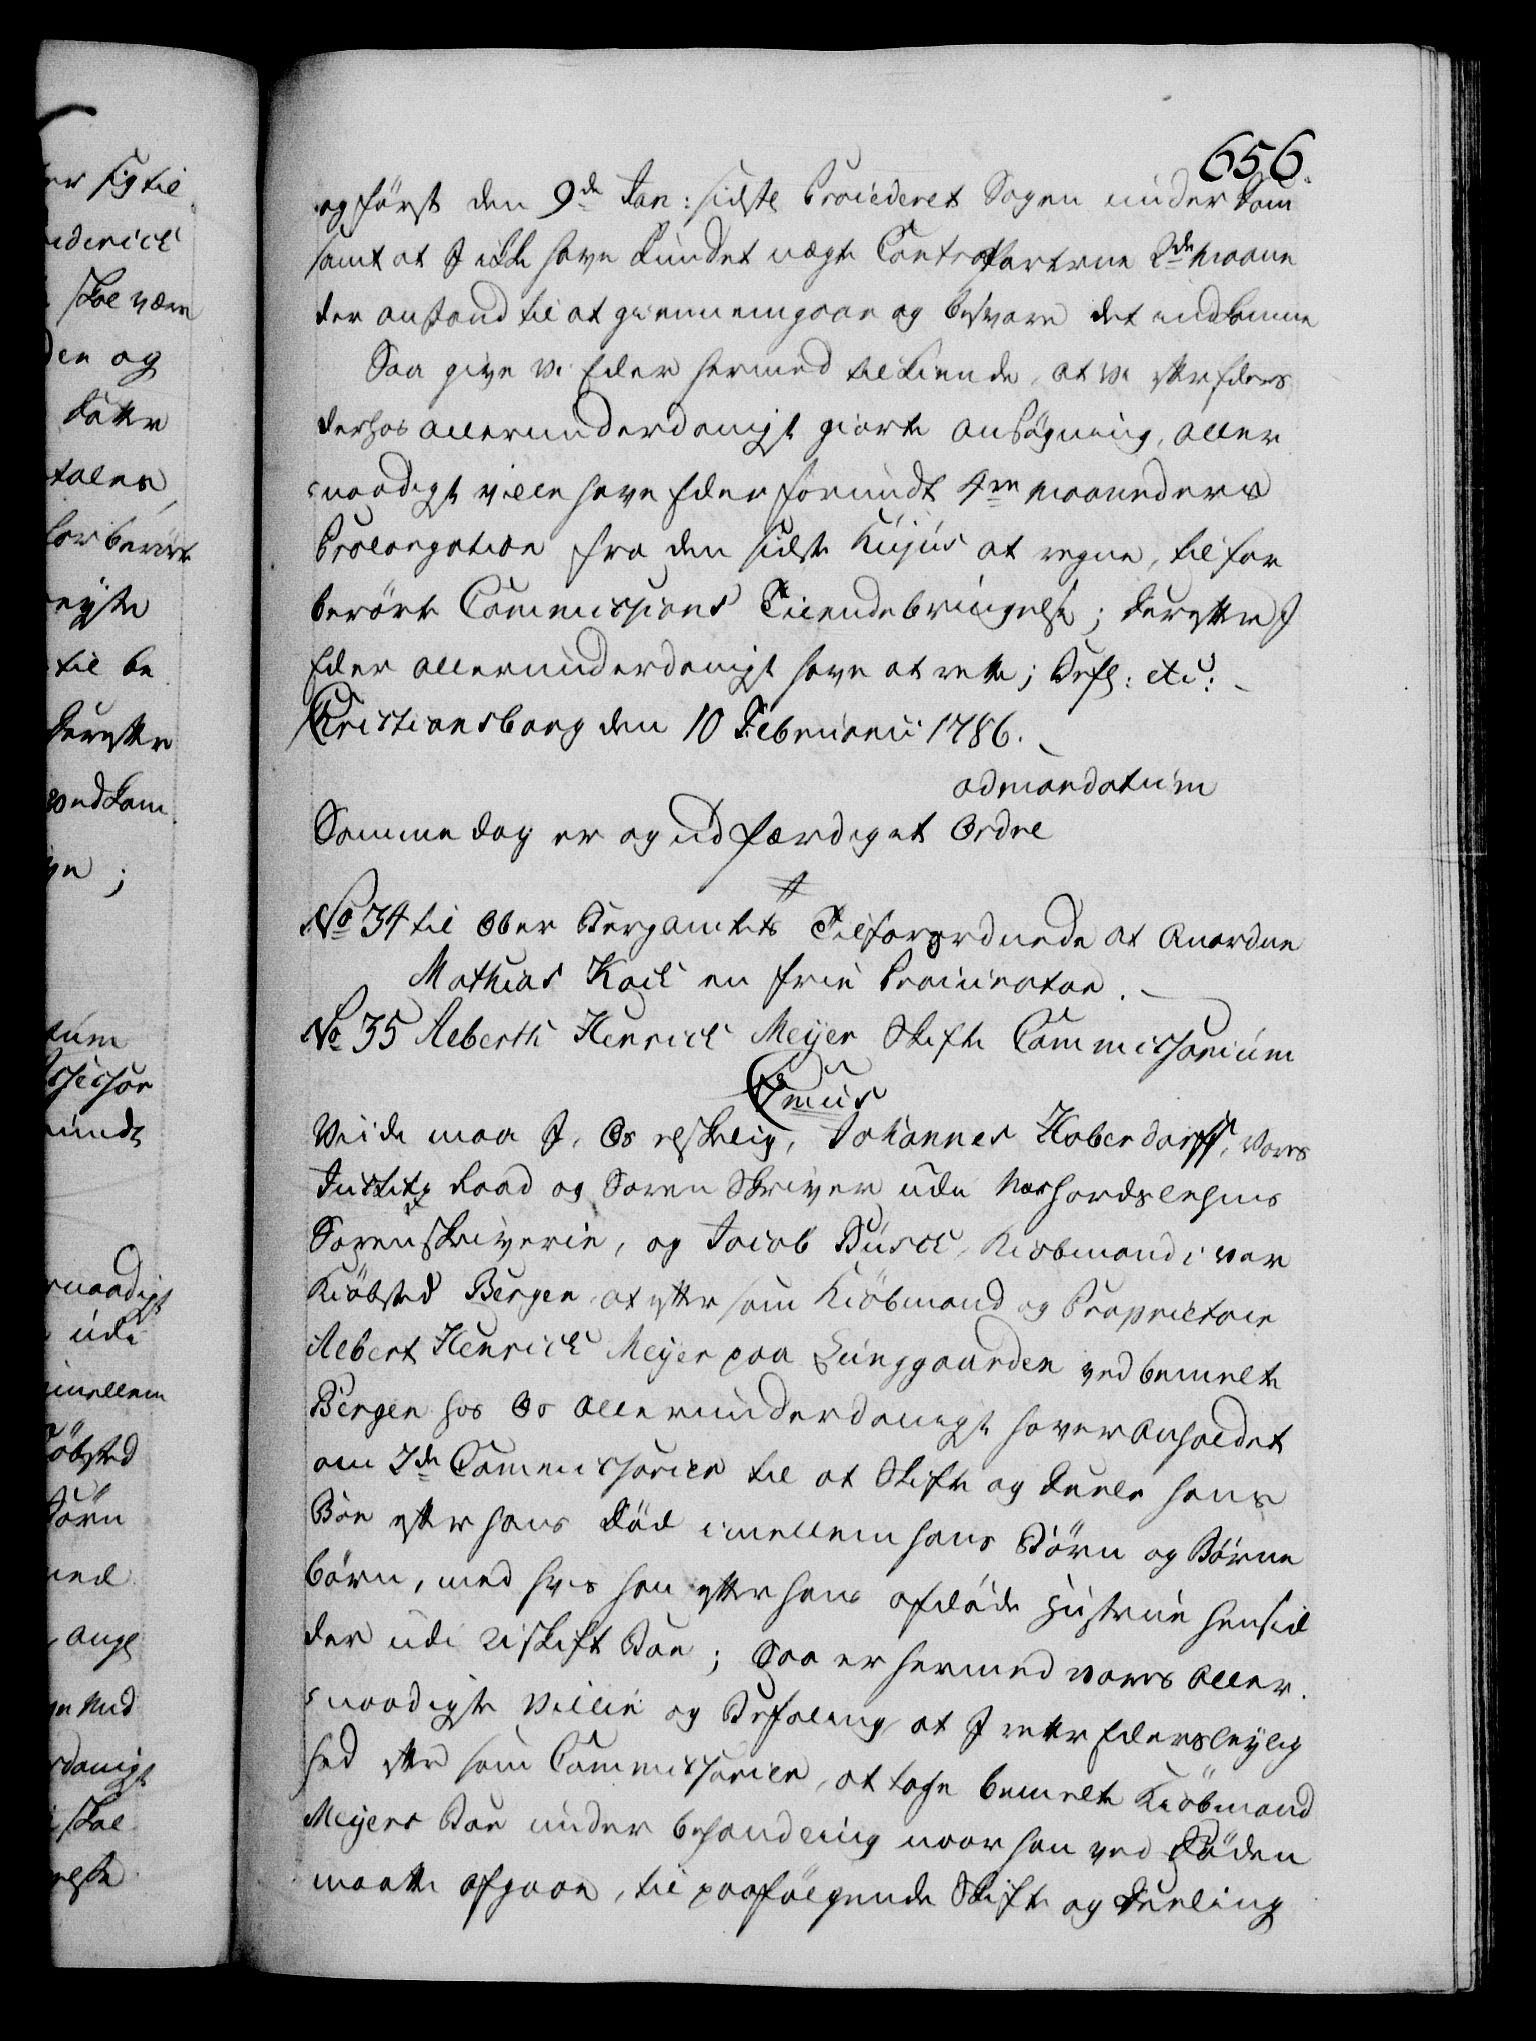 656.
og först den 9de Jan: sidste Procederet Sagen under Dom
samt at I ikke have kundet nægte Contraparterne 2de maane
der anstand til at giennemgaae og besvare det indkomne
Saa give Vi Eder hermed tilkiende, at Vi efter Eders
derhos allerunderdanigst giorte ansögning, aller
naadigst ville have Eder forundt 4re maaneders
Prolongation fra den sidste Hujus at regne, til for
berörte Commissions Tilendebringelse; derefter I
Eder allerunderdanigst have at rette; Befl: etc:
Christiansborg den 10 Februarii 1786.
ad mandatum
Samme dag er og udfærdiget Ordre
No 34 til Ober Bergamtets Tilforordnede at Anordne
Mathias Koch en frie Procurator.
No 35 Alberth Henrich Meyer Skifte Commissorium
C 7mus
Viide maa I, Os elskelig, Johannes Haberdorff, Vores
Justitz Raad og Soren Skriver udi Nordhordlehns
Sorenskriverie, og Jacob Busch, Kiøbmand i vor
Kiöbsted Bergen, at eftersom Kiöbmand og Proprietair
Albert Henrich Meyer paa Lunggaarden ved bemelte
Bergen hos Os allerunderdanigst haver anholdet
om 2de Commissarier til at Skifte og deele hans
Boe efter hans Död imellem hans Börn og Börne
börn, med hvis han efter hans afdöde Hustrue hensid
der udi uskift Boe; Saa er hermed vores aller
naadigste Villie og Befaling, at I retter Eders leylig
hed efter som Commissarier, at tage bemelte Kiöbmand
Meyers Boe under behandling naar han ved Döden
maatte afgaae, til paafölgende Skifte og deeling